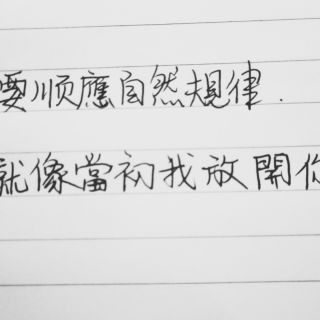 要顺應自然規律.
就像當初我放開你